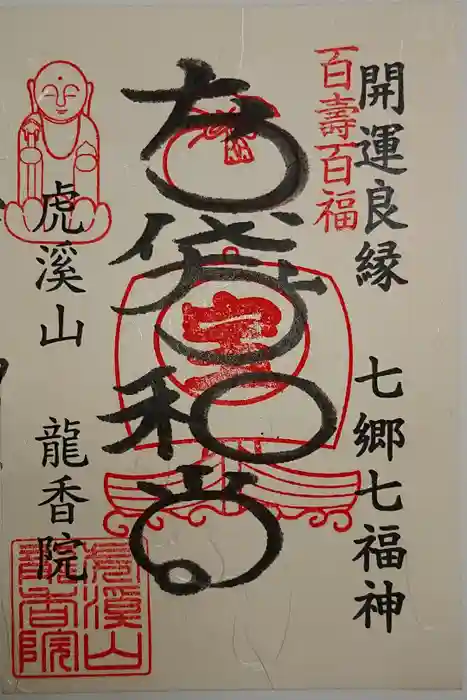 開運良縁 七郷七福神
百壽百福
布袋和尚
宝
虎溪山 龍香院
虎溪山
龍香院